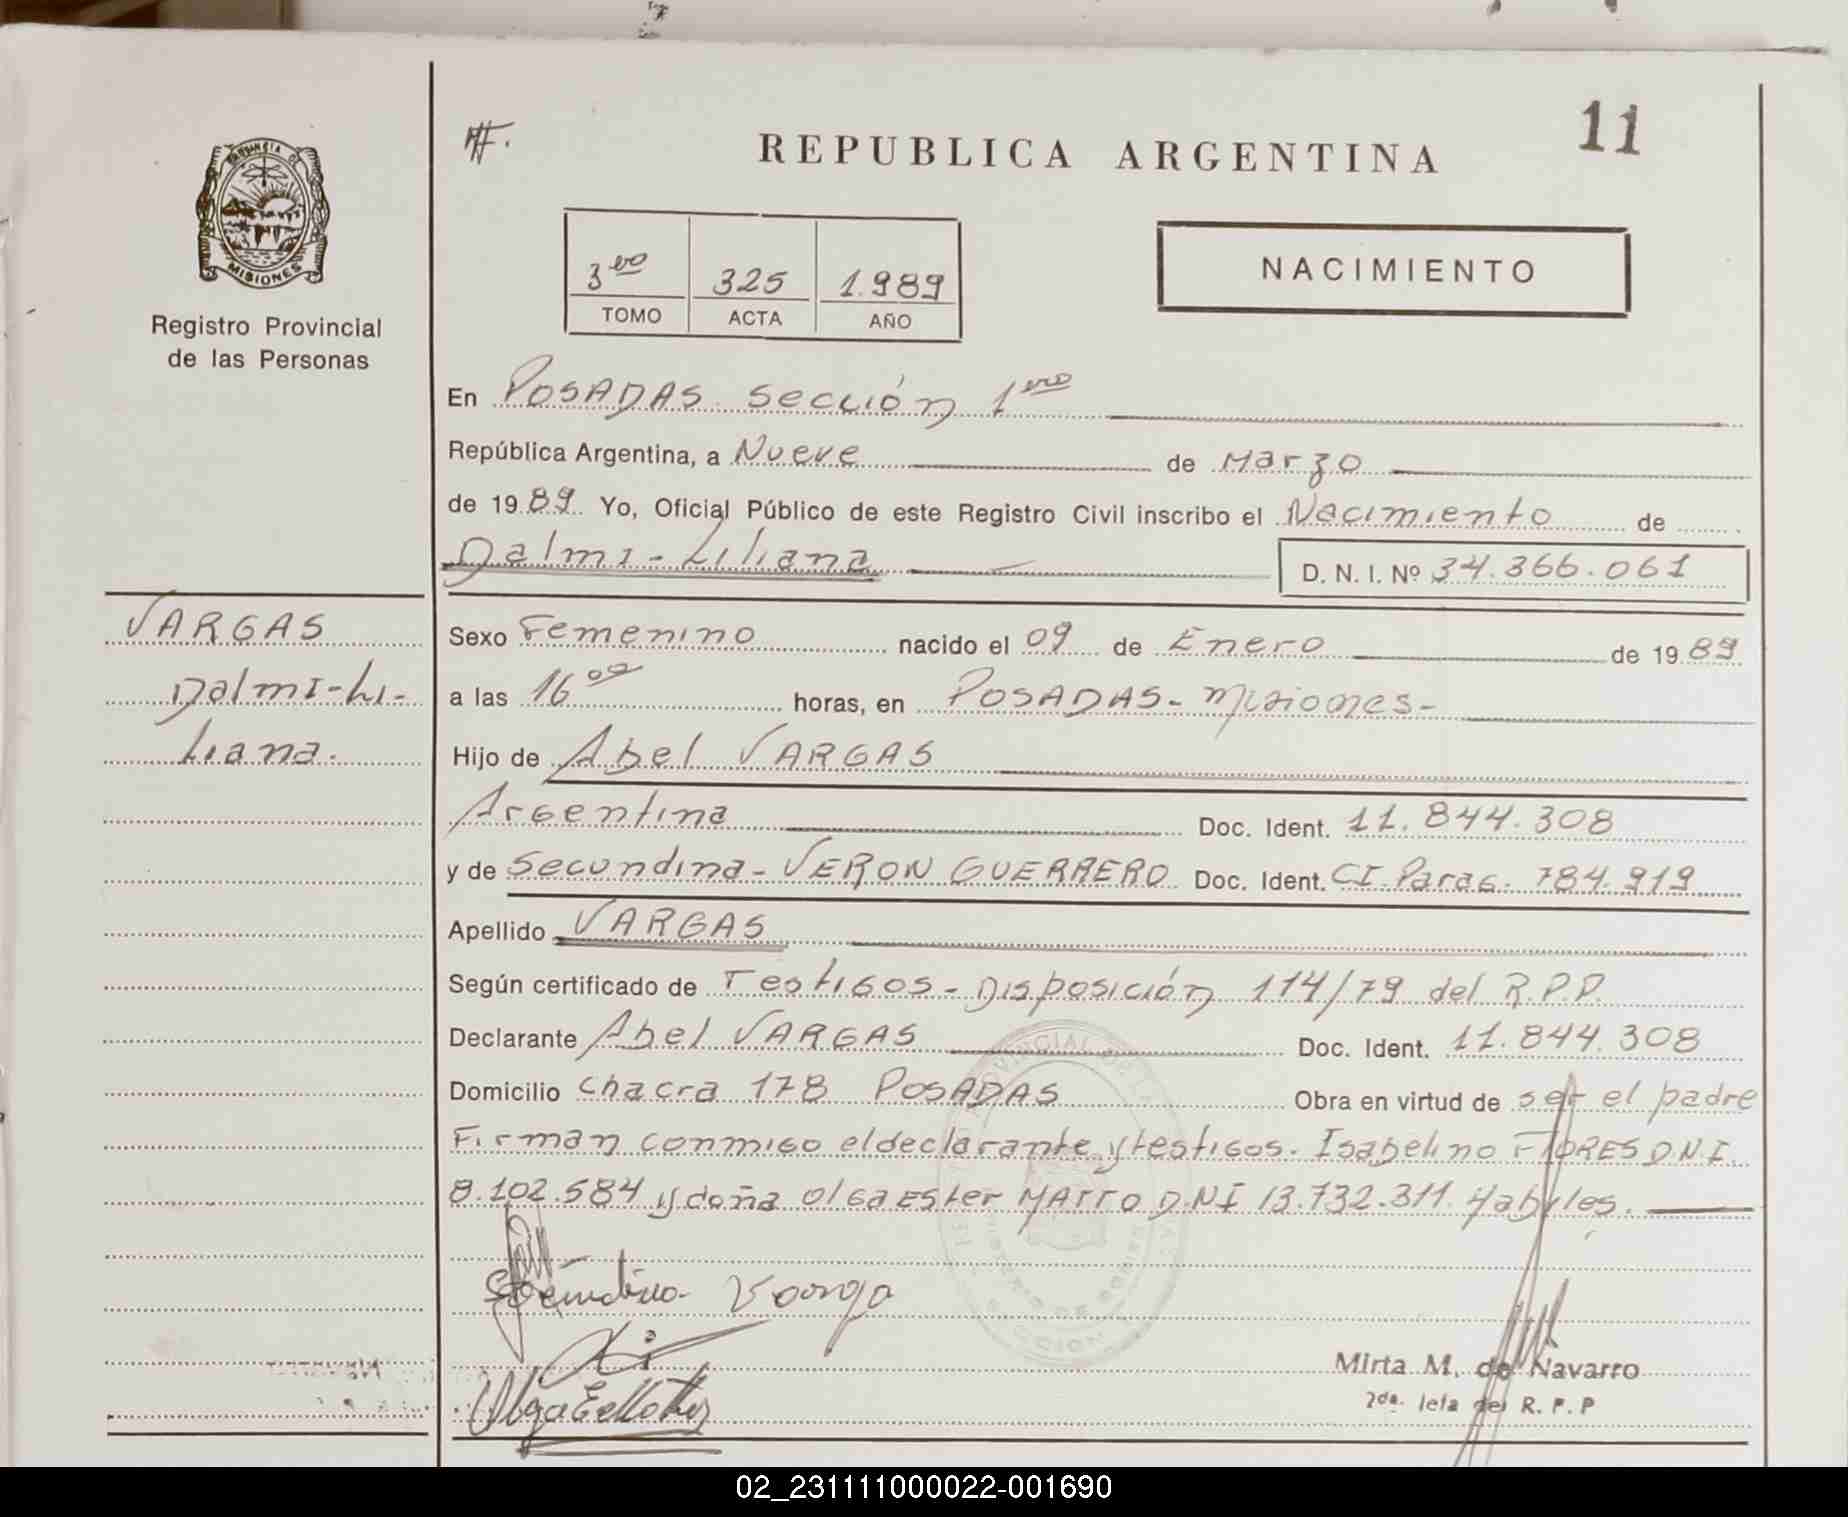 11
REPUBLICA ARGENTINA
PROVINCIA DE
MISIONES
Registro Provincial
de las Personas
3ero 325 1.989
TOMO ACTA AÑO
NACIMIENTO
En POSADAS Sección 1ero
República Argentina, a Nueve de Marzo
de 1989 Yo, Oficial Público de este Registro Civil inscribo el Nacimiento de
Dalmi-Liliana D. N. I. Nº 34.366.061
VARGAS
Dalmi-Li-
liana.
Sexo Femenino nacido el 09 de Enero de 1989
a las 16 00 horas, en POSADAS-Misiones-
Hijo de Abel VARGAS
Argentina Doc. Ident. 11.844.308
y de Secundina-VERON GUERRERO Doc. Ident. CI-Parag. 784.919
Apellido VARGAS
Según certificado de Testigos-Disposición 114/79 del R.P.P.
Declarante Abel VARGAS Doc. Ident. 11.844.308
Domicilio chacra 178 POSADAS Obra en virtud de ser el padre
Firman conmigo el declarante y testigos. Isabelino FLORES D.N.I.
8.102.584 y doña Olga Ester MATTO D.N.I 13.732.311. Habiles.
Olga E
Mirta M. de Navarro
2da. Jefa del R. P. P
02_231111000022-001690